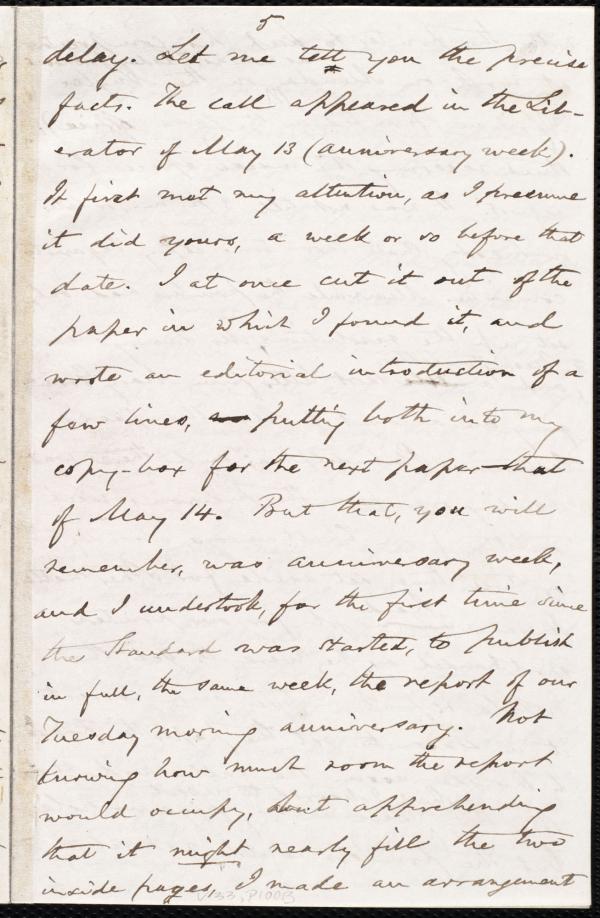 5
delay. Let me tell you the precise
facts. The call appeared in the Lib-
erator of May 13 (anniversary week).
It first met my attention, as I presume
it did yours, a week or so before that
date. I at once cut it out of the
paper in which I found it, and
wrote an editorial introduction of a
few lines, putting both into my
copy-box for the next paper—that
of May 14. But that, you will
remember, was anniversary week,
and I undertook, for the first time since
the Standard was started, to publish
in full, the same week, the report of our
Tuesday morning anniversary. Not
knowing how much room the report
would occupy, but apprehending
that it might nearly fill the two
inside pages, I made an arrangement